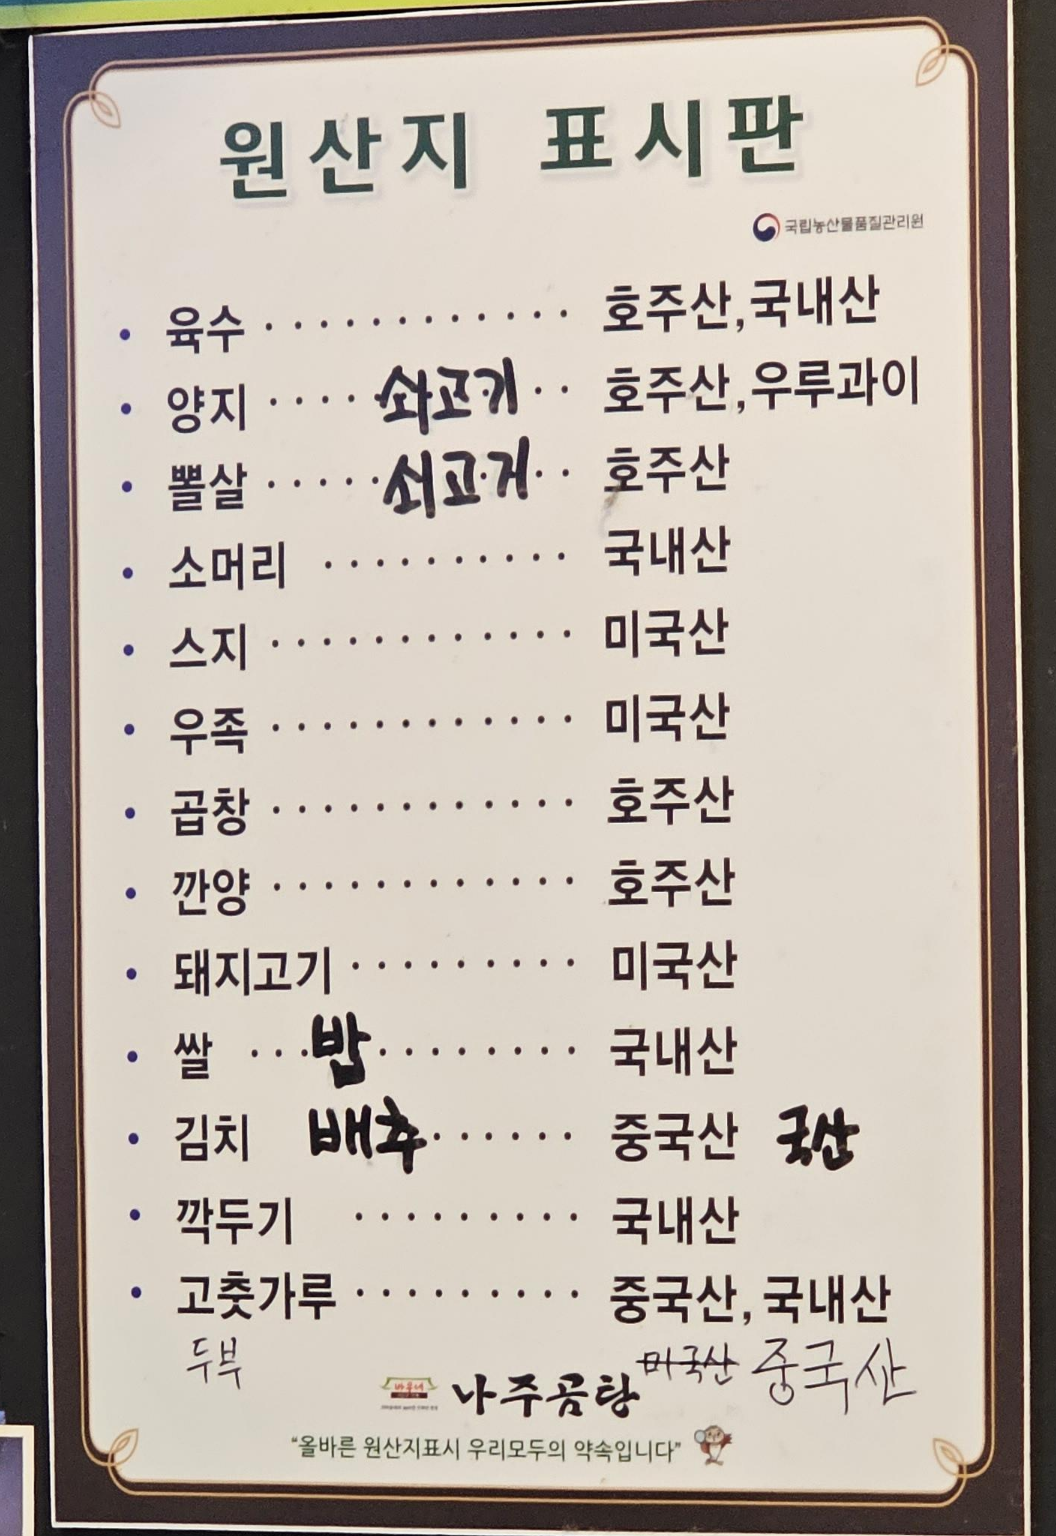 원산지 표시판
국립농산물품질관리원
• 육수 ············ 호주산,국내산
• 양지 ···· 쇠고기 ·· 호주산,우루과이
• 뽈살 ····· 쇠고기 ·· 호주산
• 소머리 ·········· 국내산
• 스지 ············ 미국산
• 우족 ············ 미국산
• 곱창 ············ 호주산
• 깐양 ············ 호주산
• 돼지고기 ········· 미국산
• 쌀 ··· 밥 ········ 국내산
• 김치 배추 ······ 중국산 국산
• 깍두기 ········· 국내산
• 고춧가루 ········· 중국산, 국내산
두부 미국산 중국산
나주곰탕
“올바른 원산지표시 우리모두의 약속입니다”